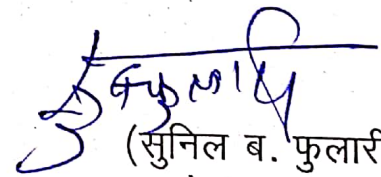 (सुनिल ब. फुलारी